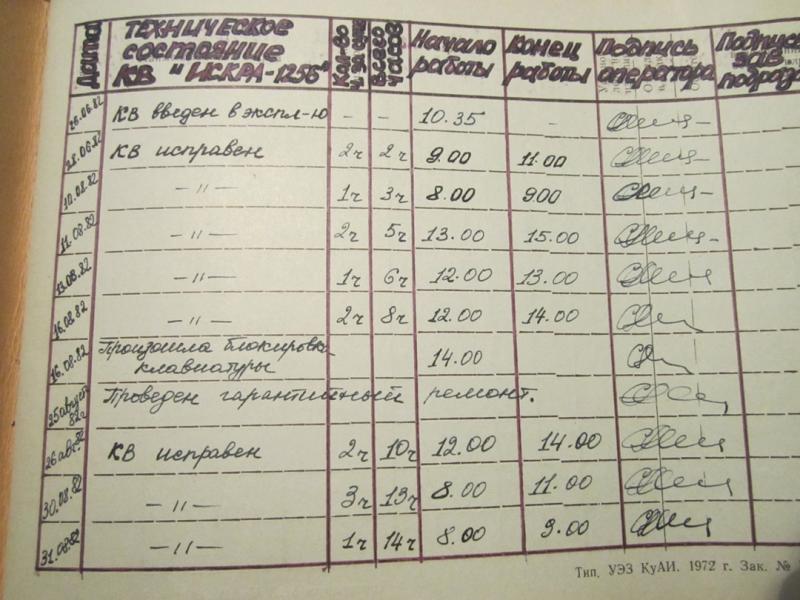 Дата ТЕХНИЧЕСКОЕ СОСТОЯНИЕ КВ "ИСКРА-125Б" Кол-во Всего часов Начало работы Конец работы Подпись оператора Подпись зав подразд
28.06.82 КВ введен в экспл-ю – – 10.35 –
28.06.82 КВ исправен 2ч 2ч 9.00 11.00
10.08.82 –〃– 1ч 3ч 8.00 9.00
11.08.82 –〃– 2ч 5ч 13.00 15.00
13.08.82 –〃– 1ч 6ч 12.00 13.00
16.08.82 –〃– 2ч 8ч 12.00 14.00
16.08.82 Произошла блокировка клавиатуры 14.00
25 август 82г Проведен гарантийный ремонт.
26 авг. 82 КВ исправен 2ч 10ч 12.00 14.00
30.08.82 –〃– 3ч 13ч 8.00 11.00
31.08.82 –〃– 1ч 14ч 8.00 9.00
Тип. УЭЗ КуАИ. 1972 г. Зак. №